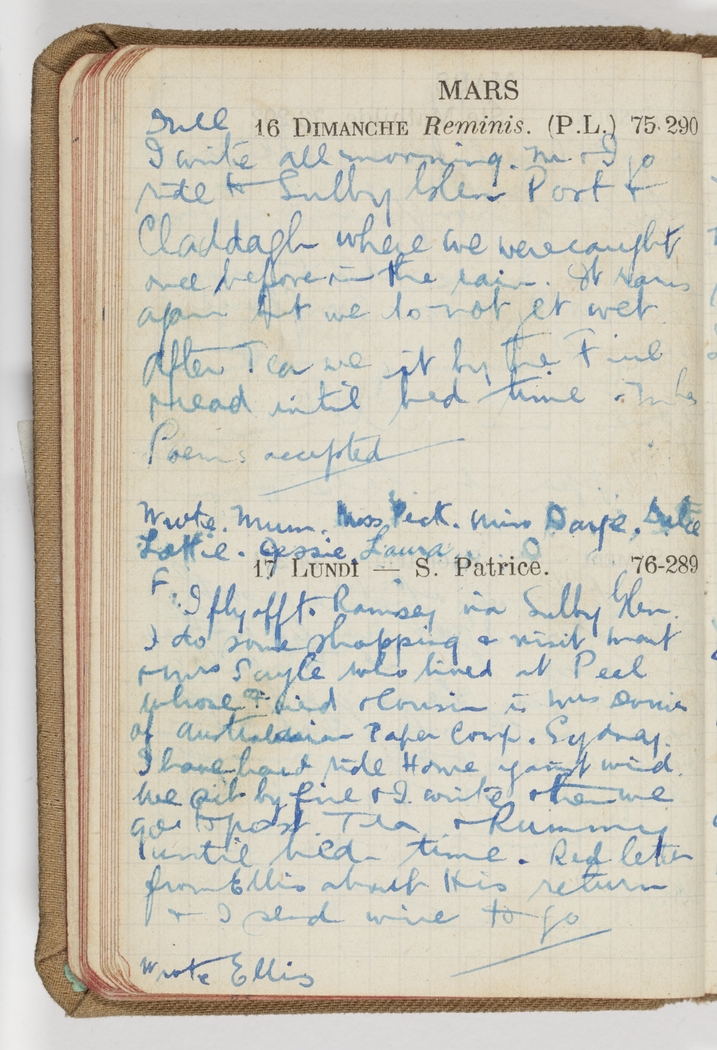 MARS
Dull
16 DIMANCHE Reminis. (P.L.) 75-290
I write all morning. M & I go
ride to Sulby Glen Post &
Claddagh where we were caught
once before in the rain. It rains
again but we do not get wet
After Tea we sit by the Fire
& read until bed time.
Poems accepted
Wrote. Mum. Miss Peck. Miss
Lottie. Jessie. Laura
17 LUNDI — S. Patrice. 76-289
F. I fly off to Ramsey via Sulby Glen.
I do some shopping & visit
& Mrs Sayle who lived at Peel
whose Friend & Cousin is Mrs
of Australasian Paper Comp. Sydney.
I have hard ride Home against wind.
We sit by fire & I write & then we
go to post. Tea & Rummy
until bed time. Red letter
from Ellis about His return
& I send wire to go
Wrote Ellis